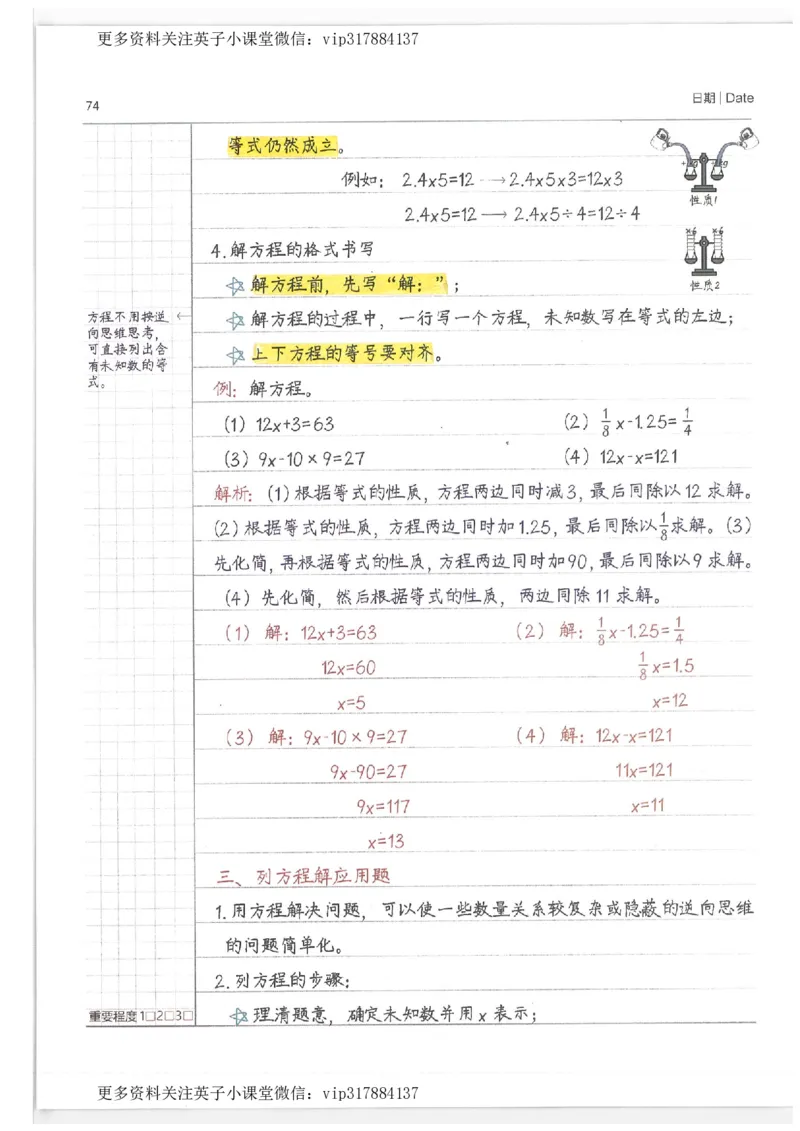 更多资料关注英子小课堂微信：vip317884137
74
日期 | Date
等式仍然成立。
例如：2.4×5=12 → 2.4×5×3=12×3
性质1
2.4×5=12 → 2.4×5÷4=12÷4
4.解方程的格式书写
×6 ×6
性质2
☆ 解方程前，先写“解：”；
方程不用按逆
向思维思考，
可直接列出含
有未知数的等
式。
☆ 解方程的过程中，一行写一个方程，未知数写在等式的左边；
☆ 上下方程的等号要对齐。
例：解方程。
（1）12x+3=63 （2）1/8 x-1.25=1/4
（3）9x-10×9=27 （4）12x-x=121
解析：（1）根据等式的性质，方程两边同时减3，最后同除以12求解。
（2）根据等式的性质，方程两边同时加1.25，最后同除以1/8求解。（3）
先化简，再根据等式的性质，方程两边同时加90，最后同除以9求解。
（4）先化简，然后根据等式的性质，两边同除11求解。
（1）解：12x+3=63 （2）解：1/8 x-1.25=1/4
12x=60 1/8 x=1.5
x=5 x=12
（3）解：9x-10×9=27 （4）解：12x-x=121
9x-90=27 11x=121
9x=117 x=11
x=13
三、列方程解应用题
1.用方程解决问题，可以使一些数量关系较复杂或隐蔽的逆向思维
的问题简单化。
2.列方程的步骤：
☆ 理清题意，确定未知数并用x表示；
重要程度1□2□3□
更多资料关注英子小课堂微信：vip317884137